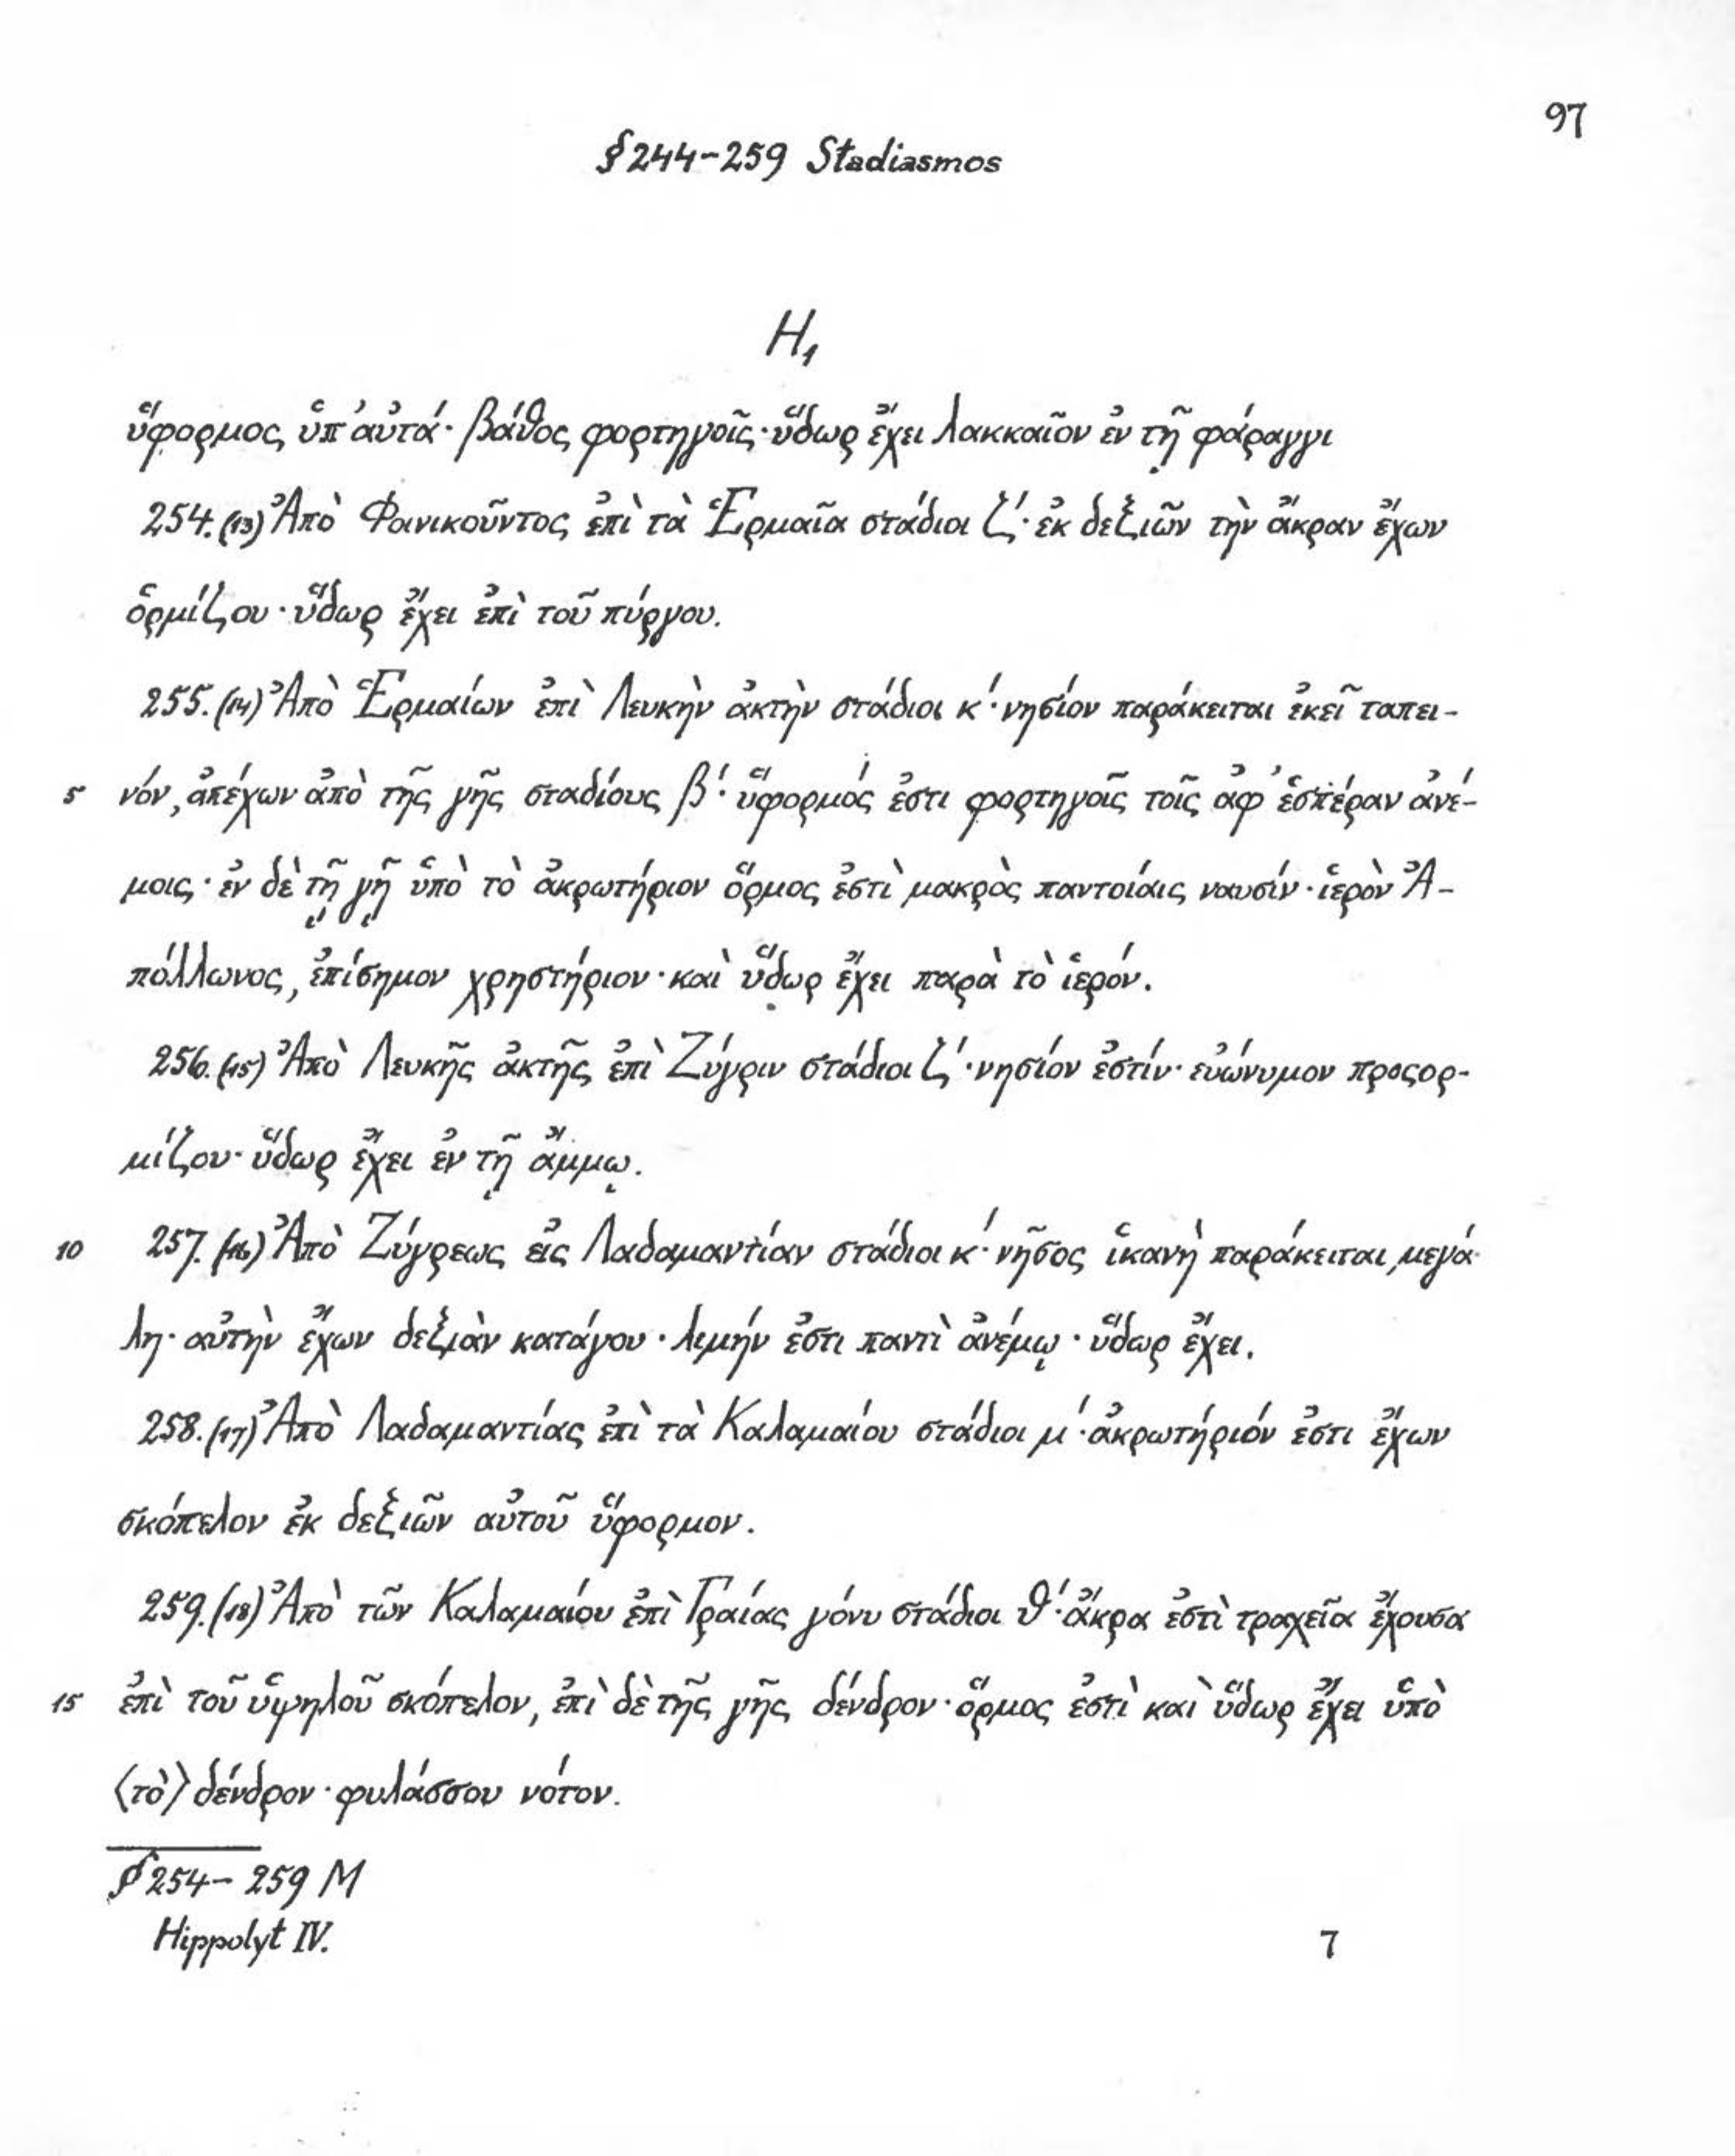 97
§ 244-259 Stadiasmos
H₁
ὕφορμος ὑπ' αὐτά· βάθος φορτηγοῖς· ὕδωρ ἔχει λακκαῖον ἐν τῇ φάραγγι
254. (13) Ἀπὸ Φοινικοῦντος ἐπὶ τὰ Ἑρμαῖα στάδιοι ζ'· ἐκ δεξιῶν τὴν ἄκραν ἔχων
ὁρμίζου· ὕδωρ ἔχει ἐπὶ τοῦ πύργου.
255. (14) Ἀπὸ Ἑρμαίων ἐπὶ Λευκὴν ἀκτὴν στάδιοι κ'· νησίον παράκειται ἐκεῖ ταπει-
5 νόν, ἀπέχων ἀπὸ τῆς γῆς σταδίους β'· ὕφορμός ἐστι φορτηγοῖς τοῖς ἀφ' ἑσπέραν ἀνέ-
μοις· ἐν δὲ τῇ γῇ ὑπὸ τὸ ἀκρωτήριον ὅρμος ἐστὶ μακρὸς παντοίαις ναυσίν· ἱερὸν Ἀ-
πόλλωνος, ἐπίσημον χρηστήριον· καὶ ὕδωρ ἔχει παρὰ τὸ ἱερόν.
256. (15) Ἀπὸ Λευκῆς ἀκτῆς ἐπὶ Ζύγριν στάδιοι ζ'· νησίον ἐστίν· εὐώνυμον προςορ-
μίζου· ὕδωρ ἔχει ἐν τῇ ἄμμῳ.
10 257. (16) Ἀπὸ Ζύγρεως εἰς Λαδαμαντίαν στάδιοι κ'· νῆσος ἱκανὴ παράκειται, μεγά-
λη· αὐτὴν ἔχων δεξιὰν κατάγου· λιμήν ἐστι παντὶ ἀνέμῳ· ὕδωρ ἔχει.
258. (17) Ἀπὸ Λαδαμαντίας ἐπὶ τὰ Καλαμαίου στάδιοι μ'· ἀκρωτήριόν ἐστι ἔχων
σκόπελον ἐκ δεξιῶν αὐτοῦ ὕφορμον.
259. (18) Ἀπὸ τῶν Καλαμαίου ἐπὶ Γραίας γόνυ στάδιοι θ'· ἄκρα ἐστὶ τραχεῖα ἔχουσα
15 ἐπὶ τοῦ ὑψηλοῦ σκόπελον, ἐπὶ δὲ τῆς γῆς δένδρον· ὅρμος ἐστὶ καὶ ὕδωρ ἔχει ὑπὸ
⟨τὸ⟩ δένδρον· φυλάσσου νότον.
§ 254-259 M
Hippolyt IV.
7